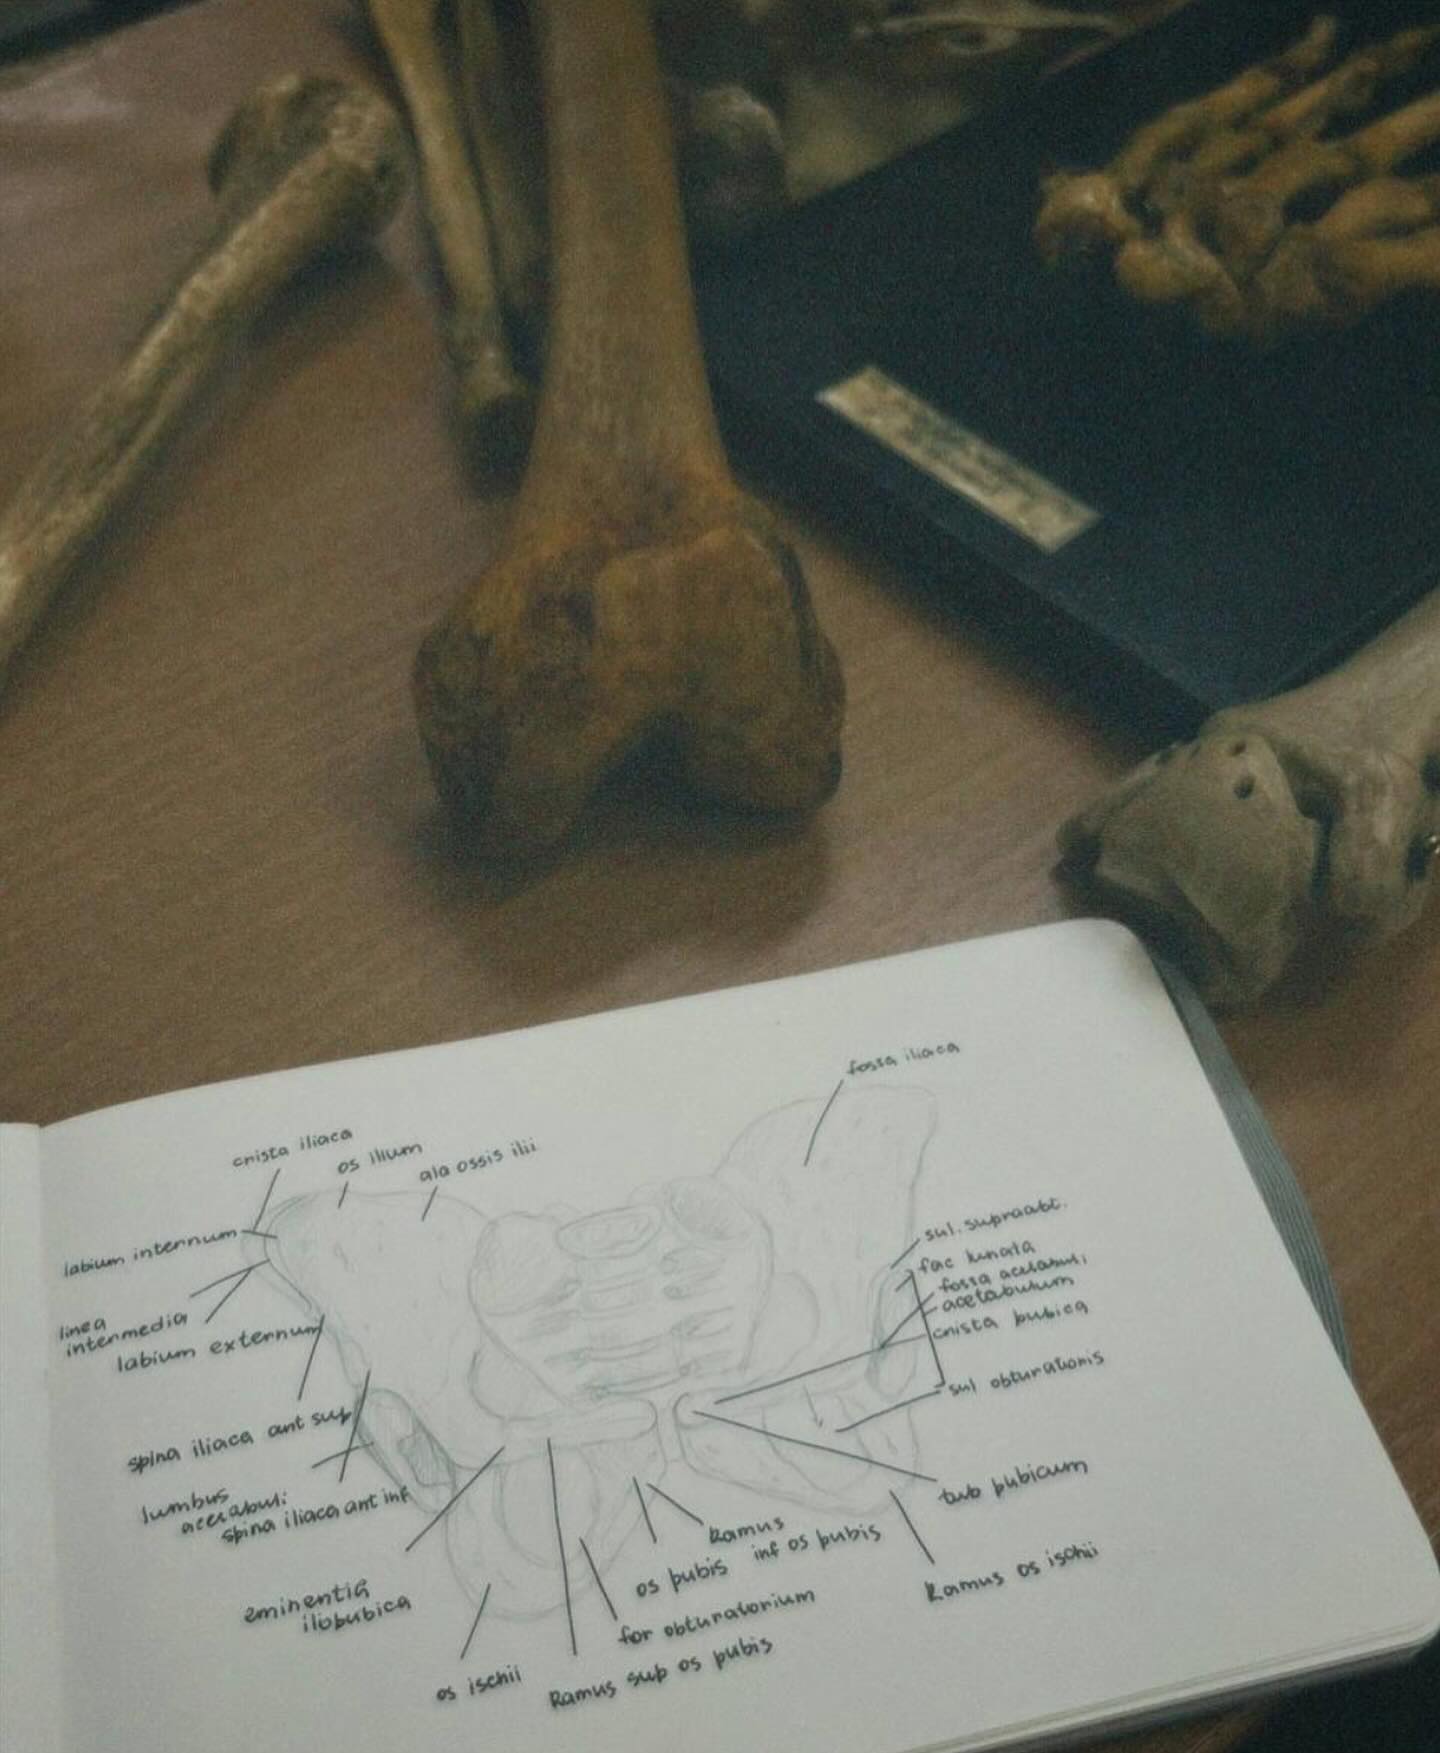 fossa iliaca
crista iliaca
os ilium
ala ossis ilii
labium internum
linea
intermedia
labium externum
spina iliaca ant sup
lumbus
acetabuli
spina iliaca ant inf
eminentia
iliopubica
os ischii
Ramus sup os pubis
for obturatorium
os pubis
Ramus
inf os pubis
sul. supraabt.
fac lunata
fossa acetabuli
acetabulum
crista pubica
sul obturationis
tub pubicum
Ramus os ischii